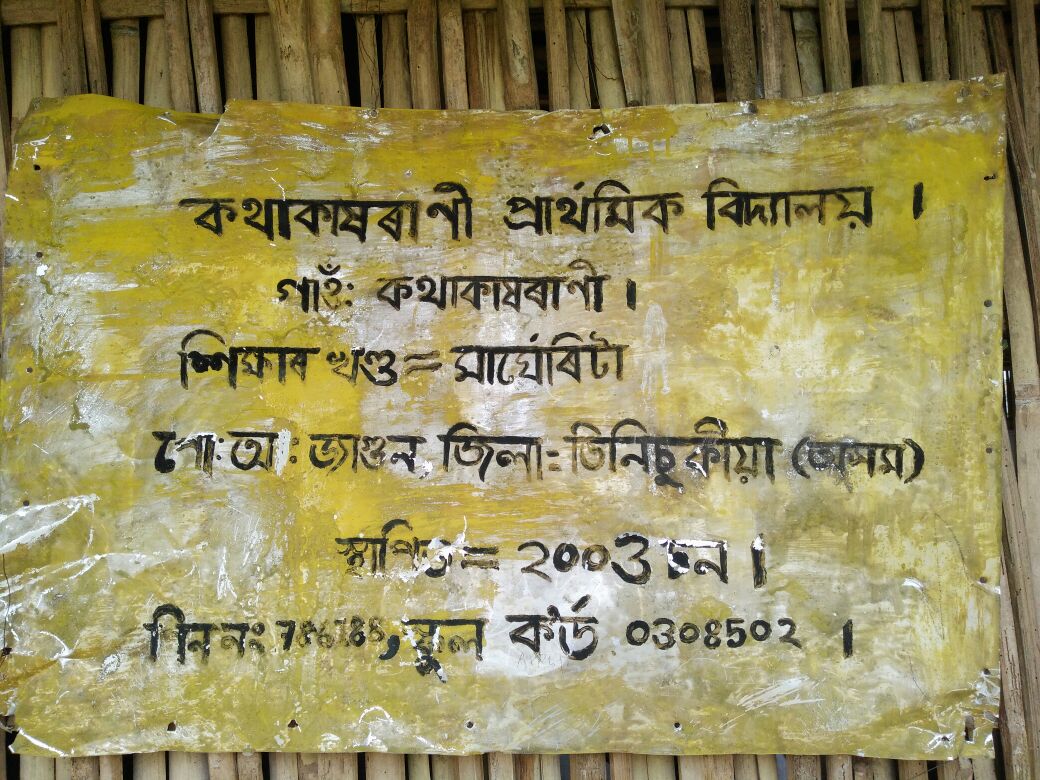 কথাকাষৰাণী প্ৰাৰ্থমিক বিদ্যালয় ।
গাওঁ: কথাকাষৰাণী ।
শিক্ষাৰ খণ্ড = মাৰ্ঘেৰিটা
পো: অ: জাগুন জিলা: তিনিচুকীয়া (অসম)
স্থাপিত = ২০০৩ চন ।
পিন নং , স্কুল কৰ্ড ০৩০৪৫০২ ।